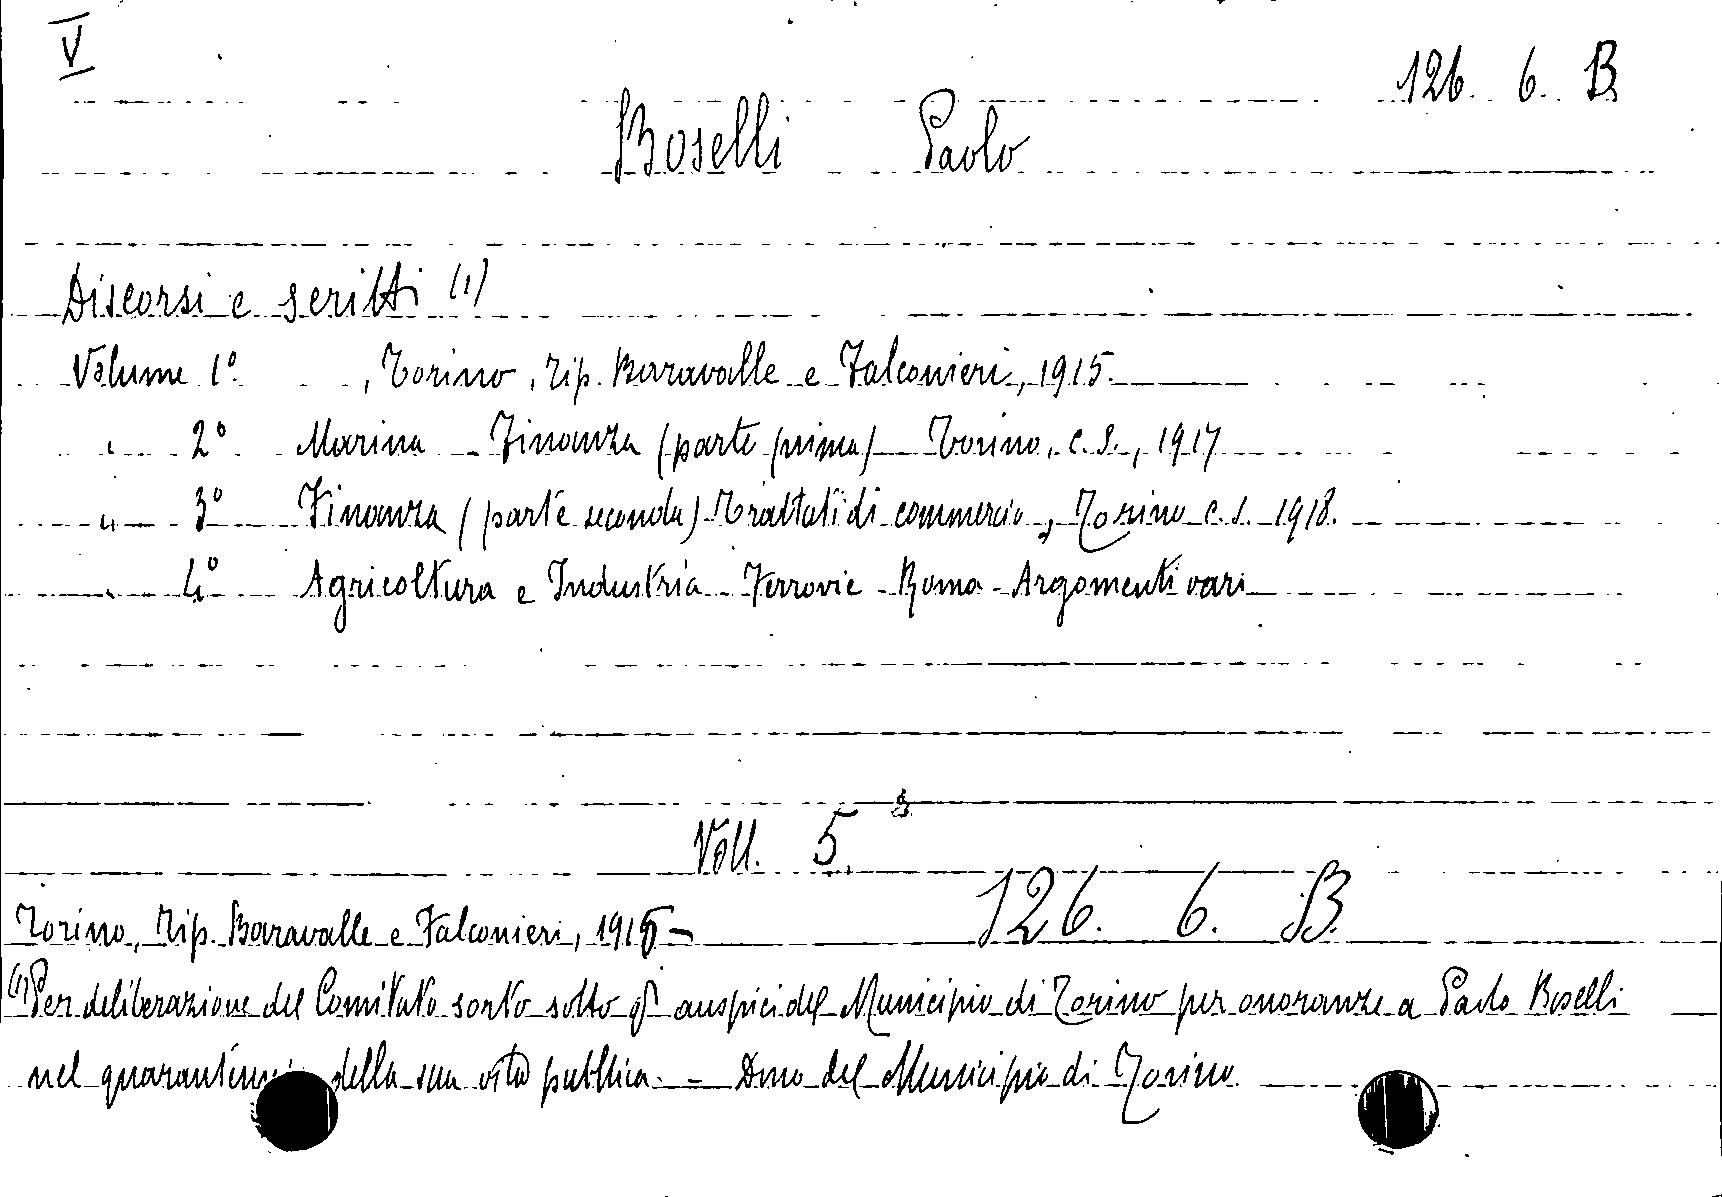 V
126. 6. B
Boselli Paolo
Discorsi e scritti (1)
Volume 1º. , Torino, Tip. Baravalle e Falconieri, 1915.
" 2º Marina - Finanza (parte prima) Torino, c.s., 1917
" 3º Finanza (parte seconda) Trattati di commercio, Torino c.s. 1918.
" 4º Agricoltura e Industria - Ferrovie - Roma - Argomenti vari
Voll. 5.
126. 6. B.
Torino, Tip. Baravalle e Falconieri, 1915 -
(1) Per deliberazione del Comitato sorto sotto gl' auspici del Municipio di Torino per onoranze a Paolo Boselli
nel della sua vita pubblica. - Dono del Municipio di Torino